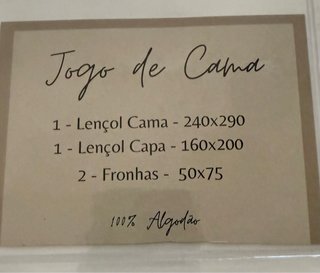 Jogo de Cama
1 - Lençol Cama - 240x290
1 - Lençol Capa - 160x200
2 - Fronhas - 50x75
100% Algodão